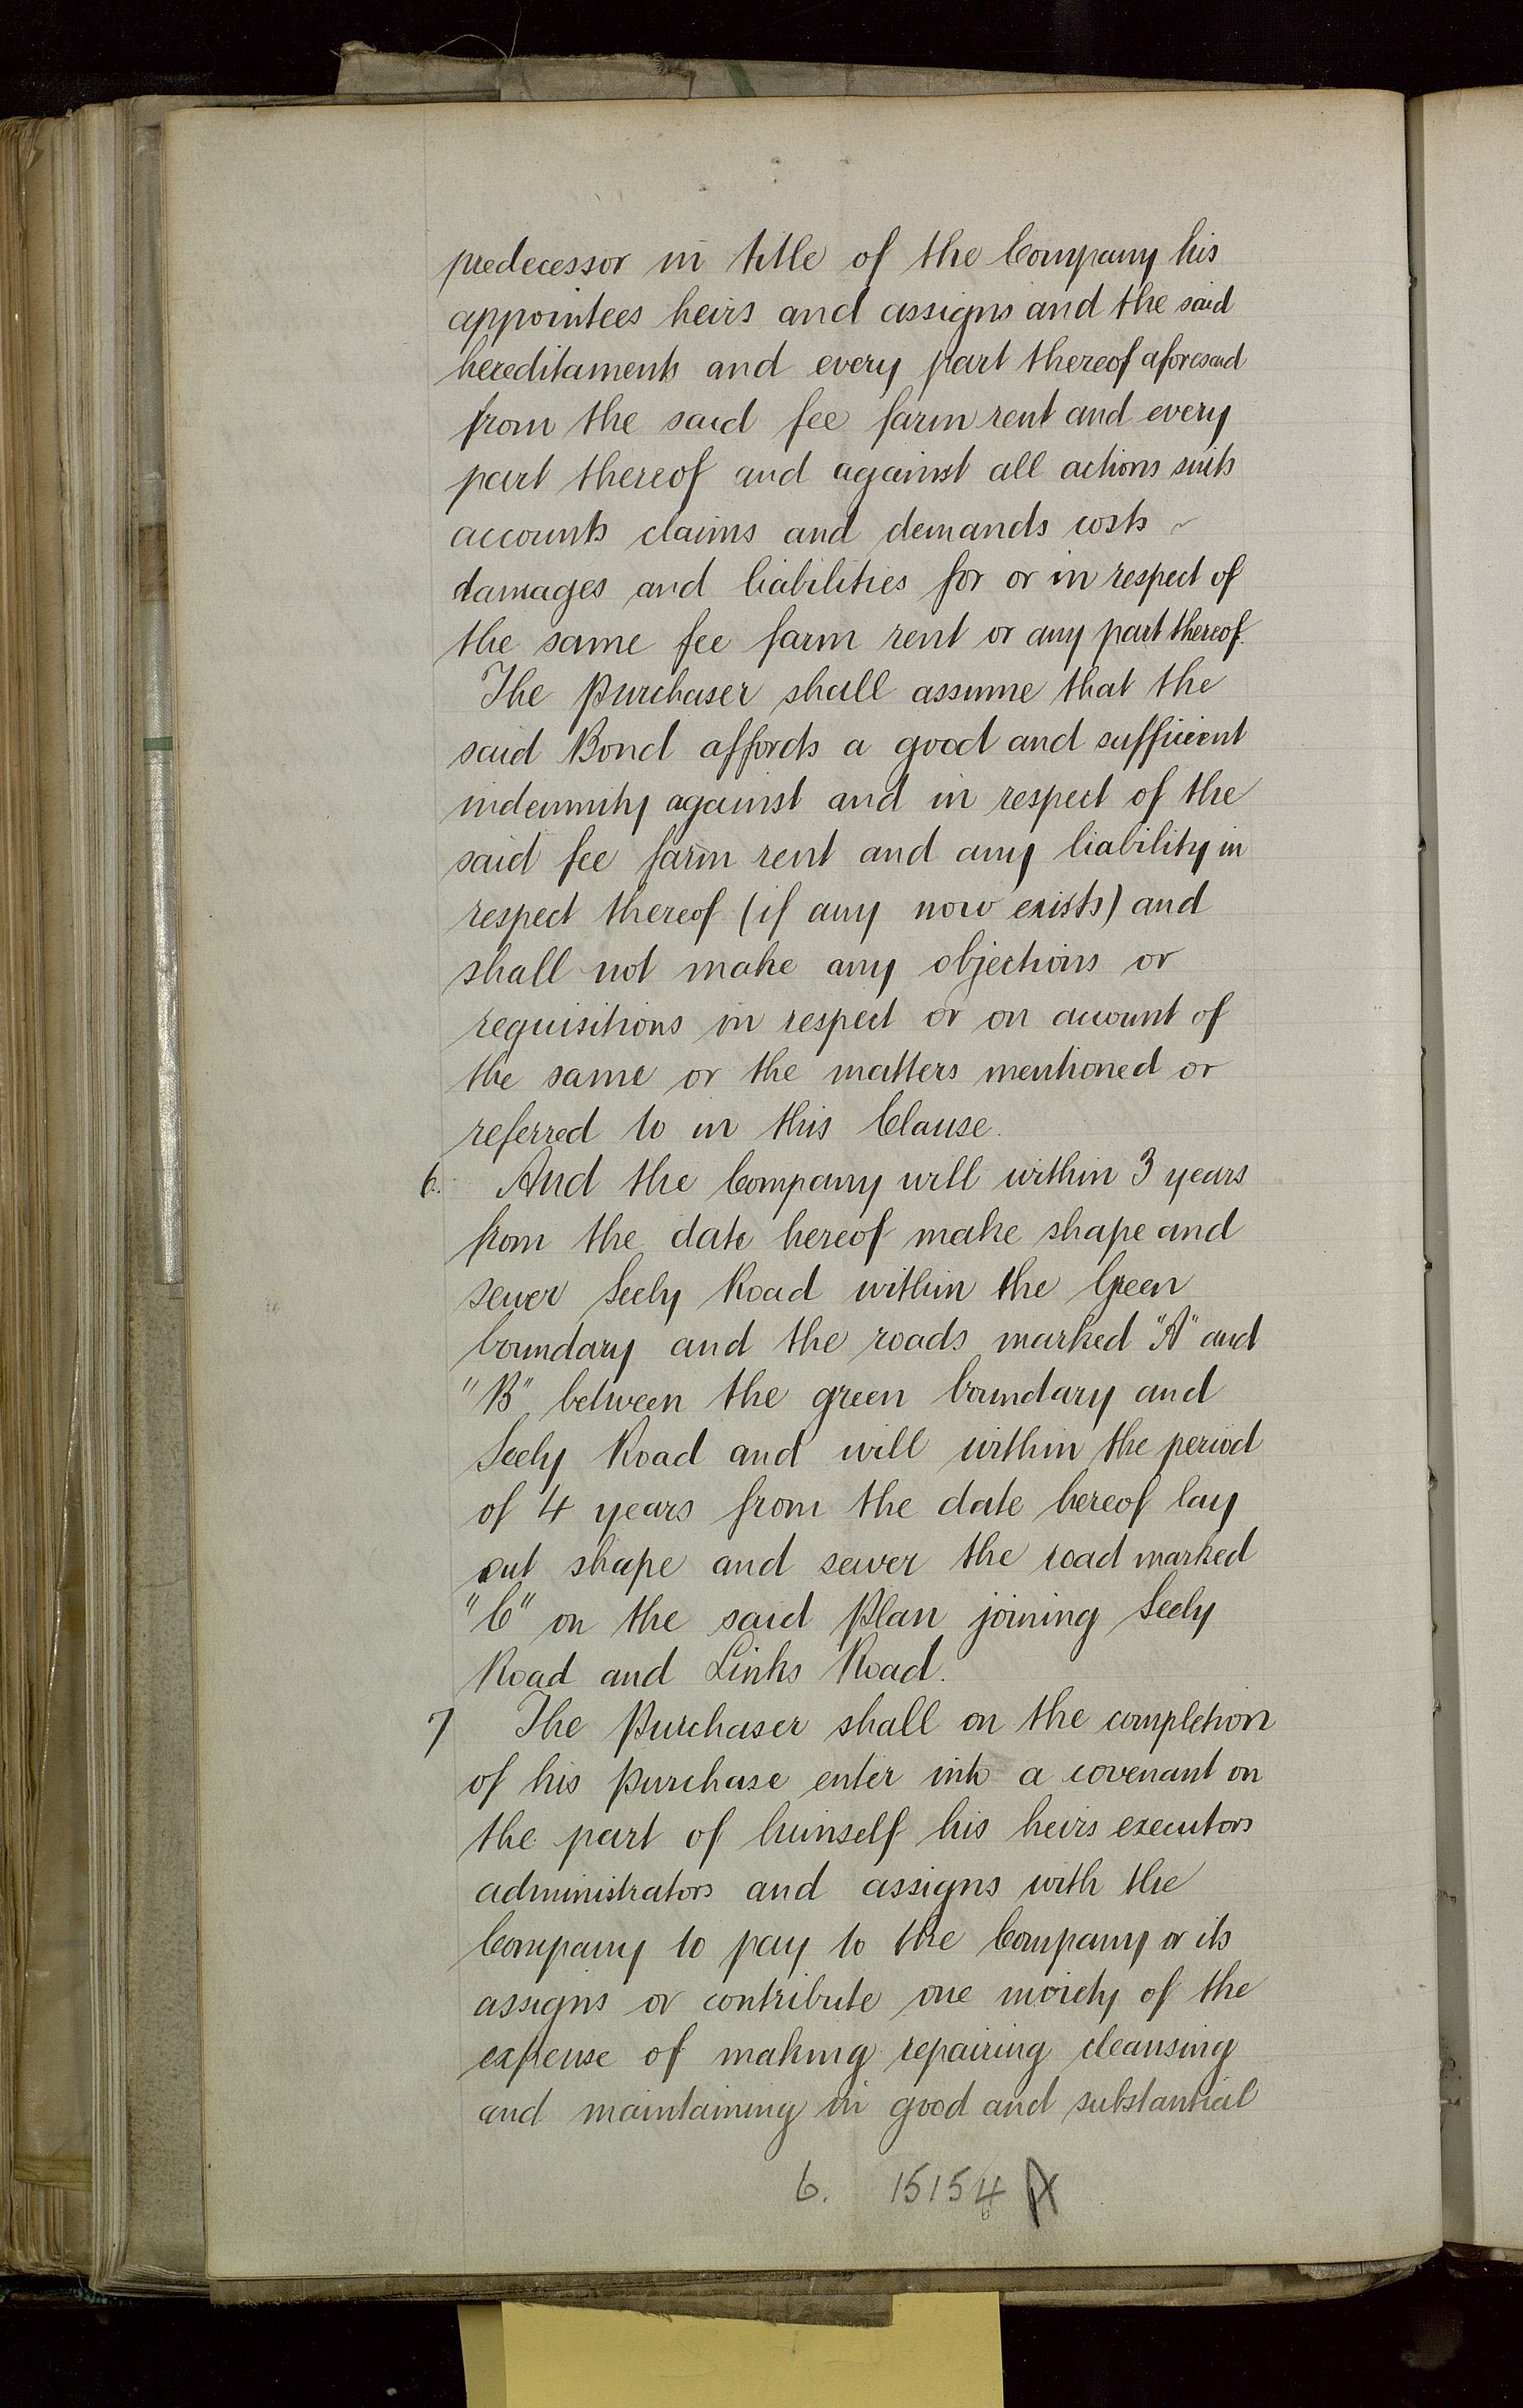 predecessor in title of the Company his
appointees heirs and assigns and the said
hereditaments and every part thereof aforesaid
from the said fee farm rent and every
part thereof and against all actions suits
accounts claims and demands costs ~
damages and liabilities for or in respect of
the same fee farm rent or any part thereof.
The Purchaser shall assume that the
said Bond affords a good and sufficient
indemnity against and in respect of the
said fee farm rent and any liability in
respect thereof (if any now exists) and
shall not make any objections or
requisitions in respect or on account of
the same or the matters mentioned or
referred to in this Clause.
6. And the Company will within 3 years
from the date hereof make shape and
sewer Seely Road within the Green
boundary and the roads marked "A" and
"B" between the green boundary and
Seely Road and will within the period
of 4 years from the date hereof lay
out shape and sewer the road marked
"C" on the said Plan joining Seely
Road and Links Road.
7 The Purchaser shall on the completion
of his Purchase enter into a covenant on
the part of himself his heirs executors
administrators and assigns with the
Company to pay to the Company or its
assigns or contribute one moiety of the
expense of making repairing cleansing
and maintaining in good and substantial
6. 15154